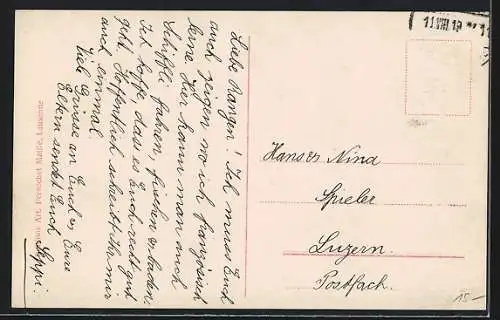 Liebe Rangen! Ich muss Euch
auch zeigen wo ich französisch
lerne. Hier kann man auch
Schiffli fahren, fischen u. baden.
Ich hoffe, dass es Euch recht gut
geht. Hoffentlich schreibt Ihr mir
auch einmal.
Viele Grüsse an Euch u. Eure
Eltern sendet Euch
Seppi.
Hans u. Nina
Spieler
Luzern.
Postfach.
11 VIII 1
Art. Perrochet Matile, Lausanne
15.-